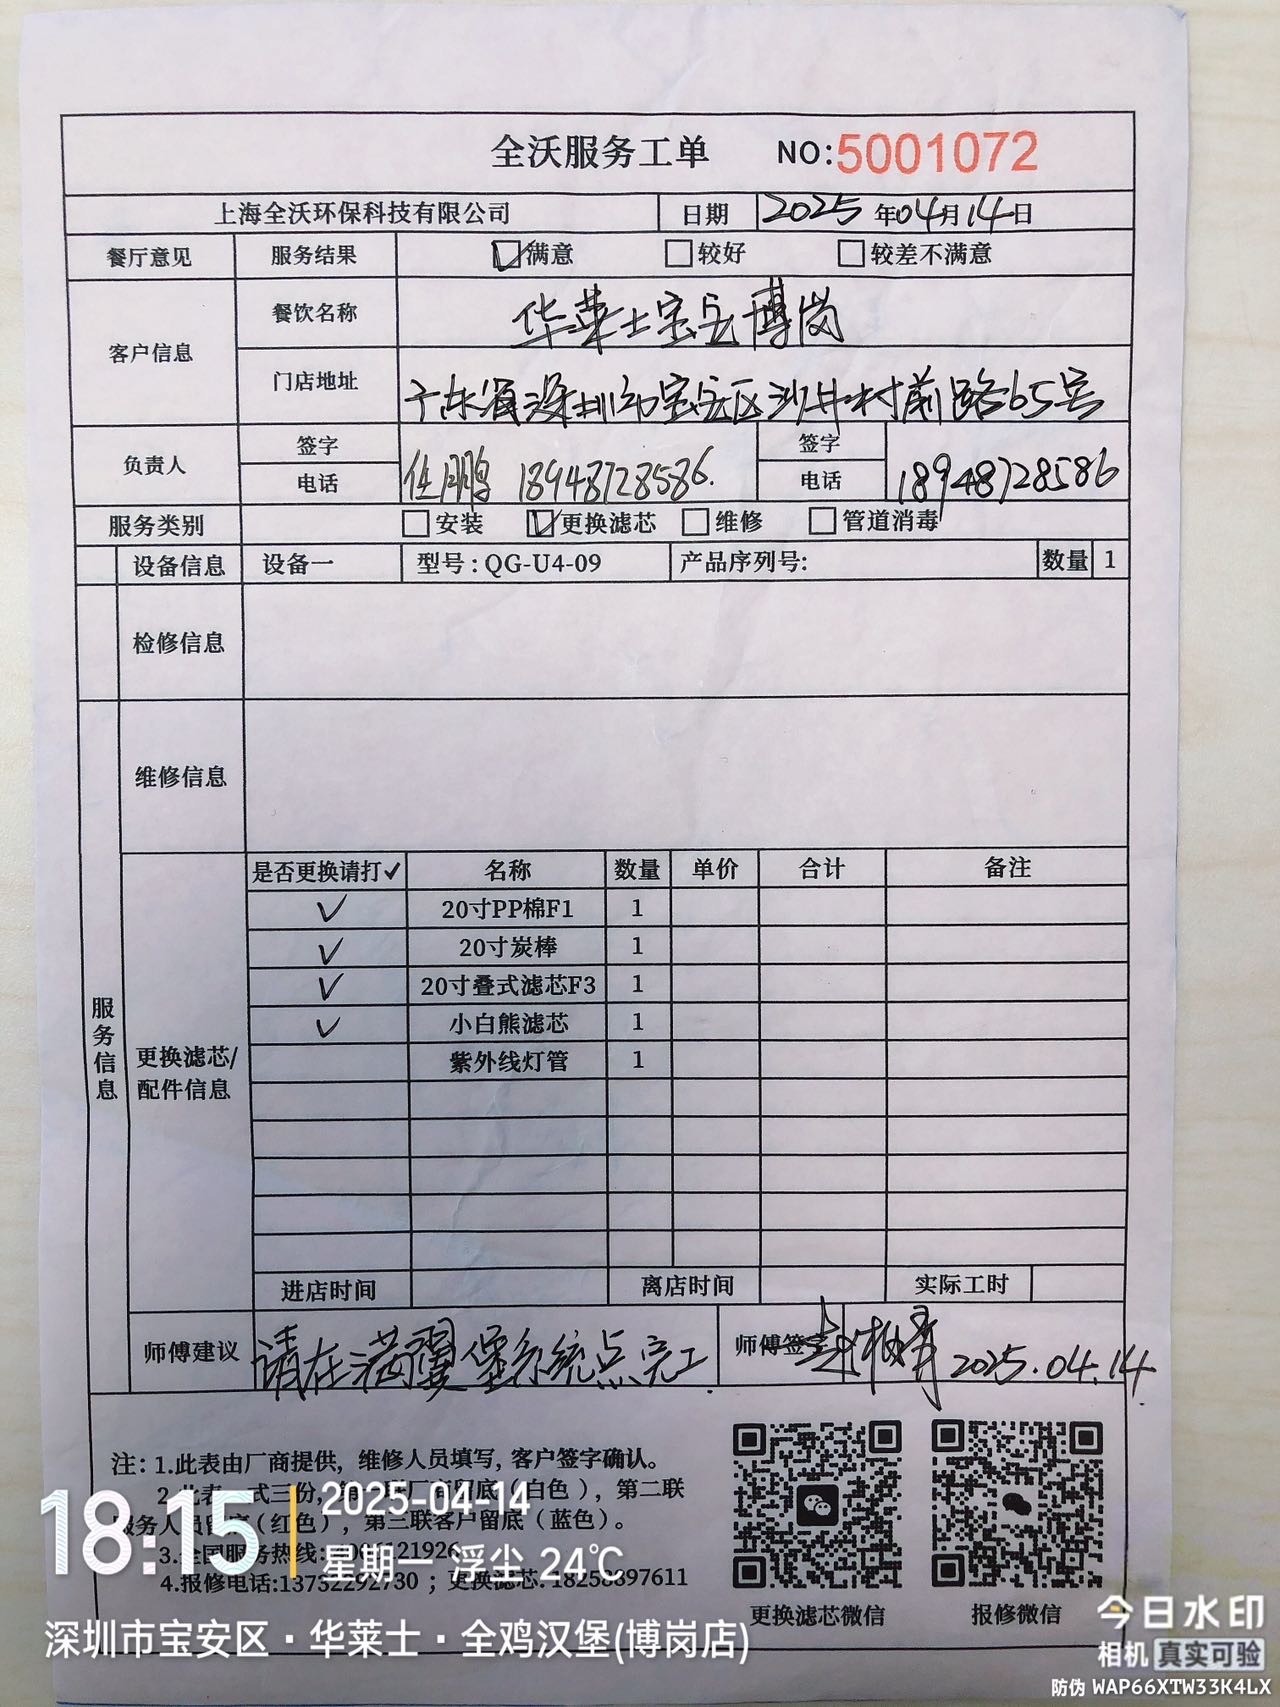 全沃服务工单 NO:5001072
上海全沃环保科技有限公司 日期 2025年04月14日
餐厅意见 服务结果 满意 较好 较差不满意
客户信息 餐饮名称 华莱士宝安博岗
门店地址 广东省深圳市宝安区沙井村前路65号
负责人 签字 电话 任鹏 18948728586. 签字 电话 18948728586
服务类别 安装 更换滤芯 维修 管道消毒
设备信息 设备一 型号:QG-U4-09 产品序列号: 数量 1
检修信息
维修信息
服务信息
更换滤芯/
配件信息
是否更换请打✓ 名称 数量 单价 合计 备注
✓ 20寸PP棉F1 1
✓ 20寸炭棒 1
✓ 20寸叠式滤芯F3 1
✓ 小白熊滤芯 1
紫外线灯管 1
进店时间 离店时间 实际工时
师傅建议 请在满翼堡系统点完工. 师傅签字 2025.04.14.
注:1.此表由厂商提供,维修人员填写,客户签字确认。
2.此表一式三份,厂商留底(白色),第二联
服务人员留底(红色),第三联客户留底(蓝色)。
3.全国服务热线:
4.报修电话:13732292730;更换滤芯:18258897611
更换滤芯微信 报修微信
18:15 2025-04-14
星期一 浮尘 24℃
深圳市宝安区·华莱士·全鸡汉堡(博岗店)
今日水印
相机 真实可验
防伪 WAP66XTW33K4LX